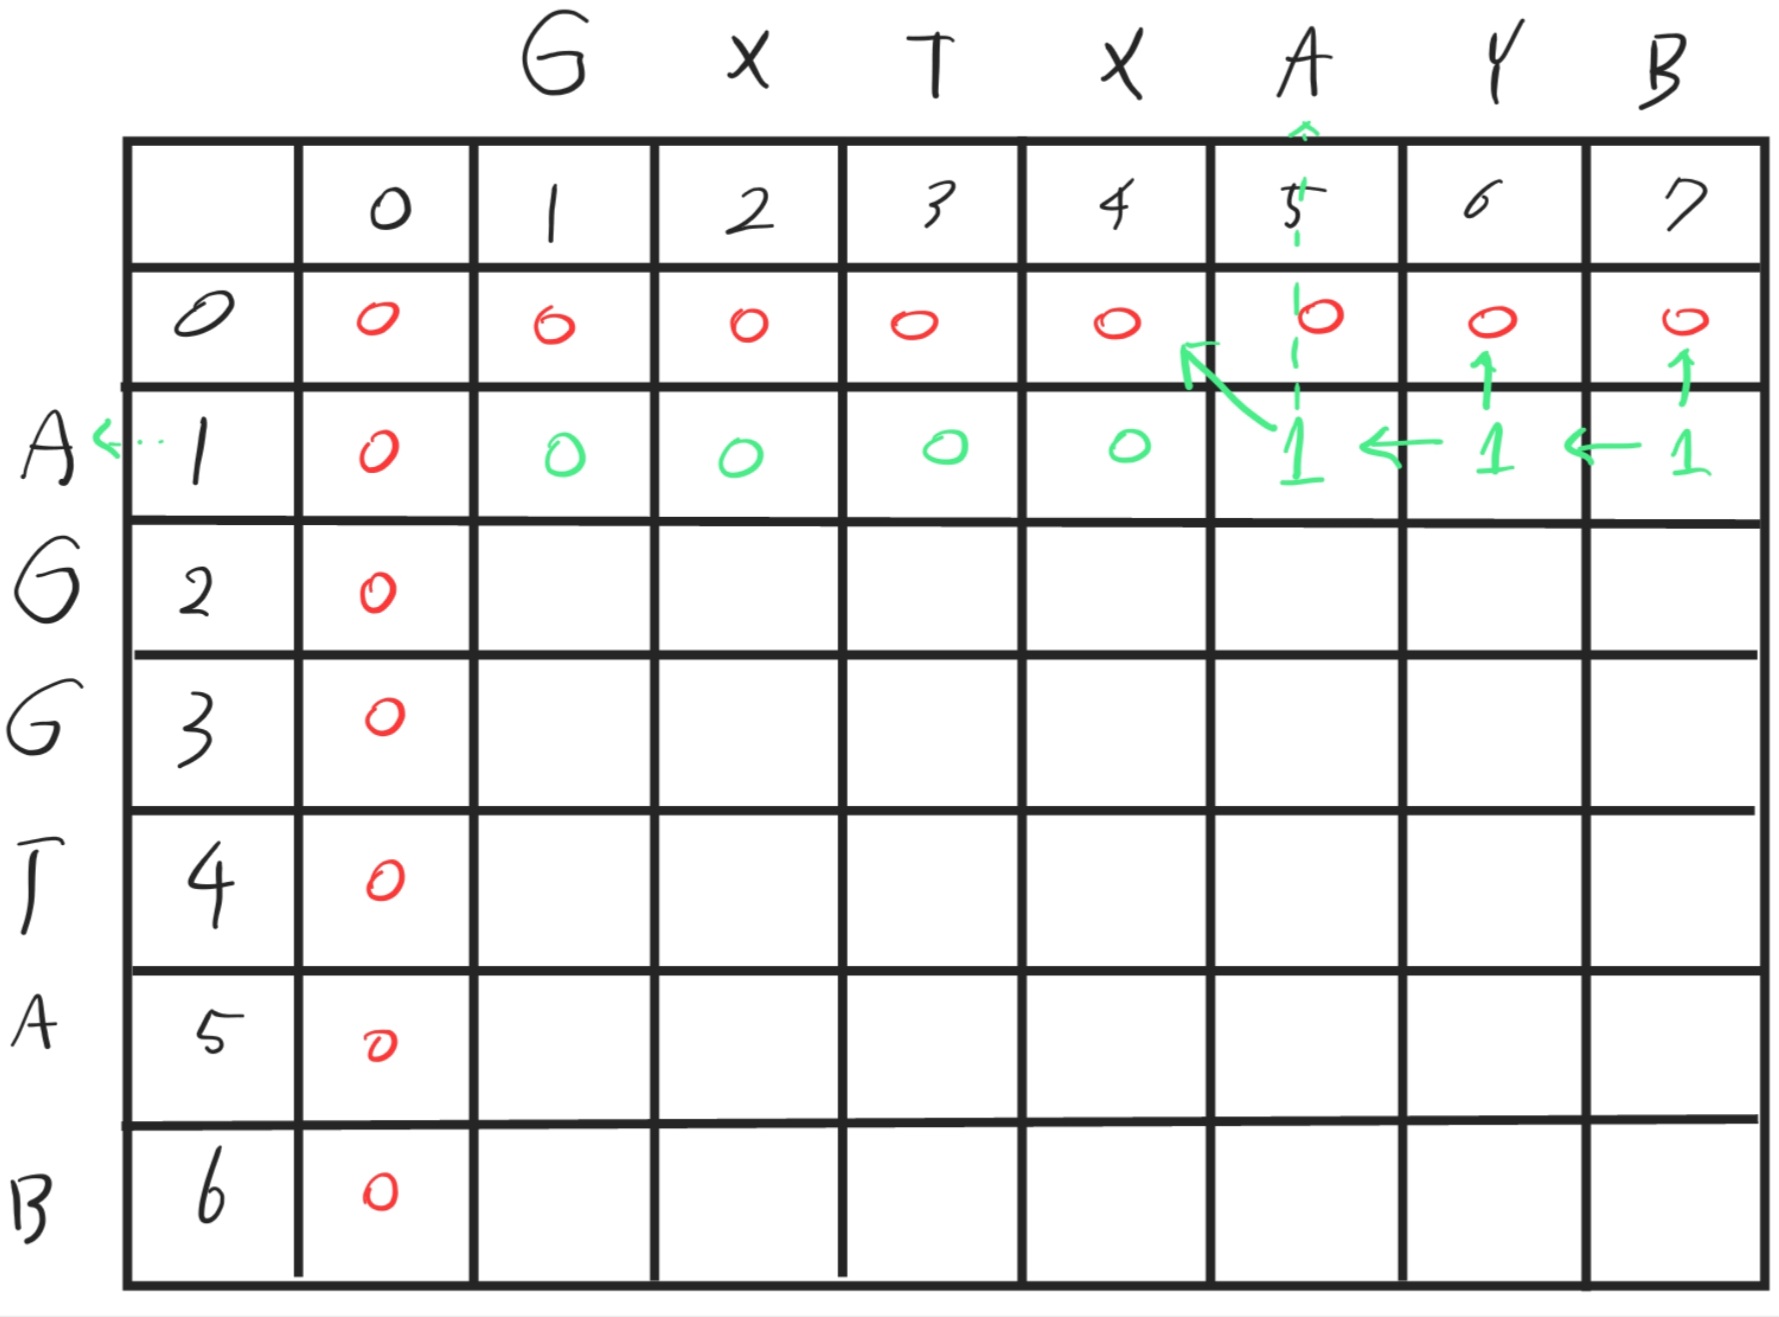 G X T X A Y B
0 1 2 3 4 5 6 7
0 0 0 0 0 0 0 0 0
A 1 0 0 0 0 0 1 1 1
G 2 0
G 3 0
T 4 0
A 5 0
B 6 0